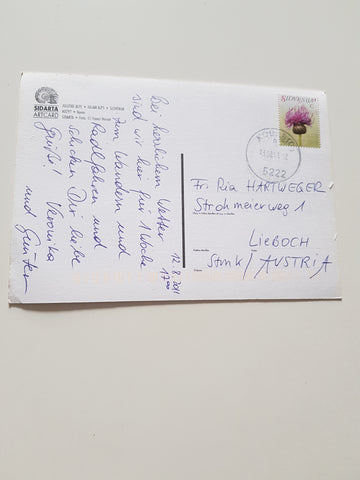 SIDARTA
ARTCARD
JULIJSKE ALPE • JULIAN ALPS • SLOVENIJA
12.8.2011
17:00
Bei herrlichem Wetter
sind wir hier für 1 Woche
zum Wandern und
Radlfahren und
schicken Dir liebe
Grüße! Veronika
und Günter
SLOVENIJA
5222
Fr. Ria HARTWEGER
Strohmeierweg 1
LIEBOCH
Stmk / AUSTRIA